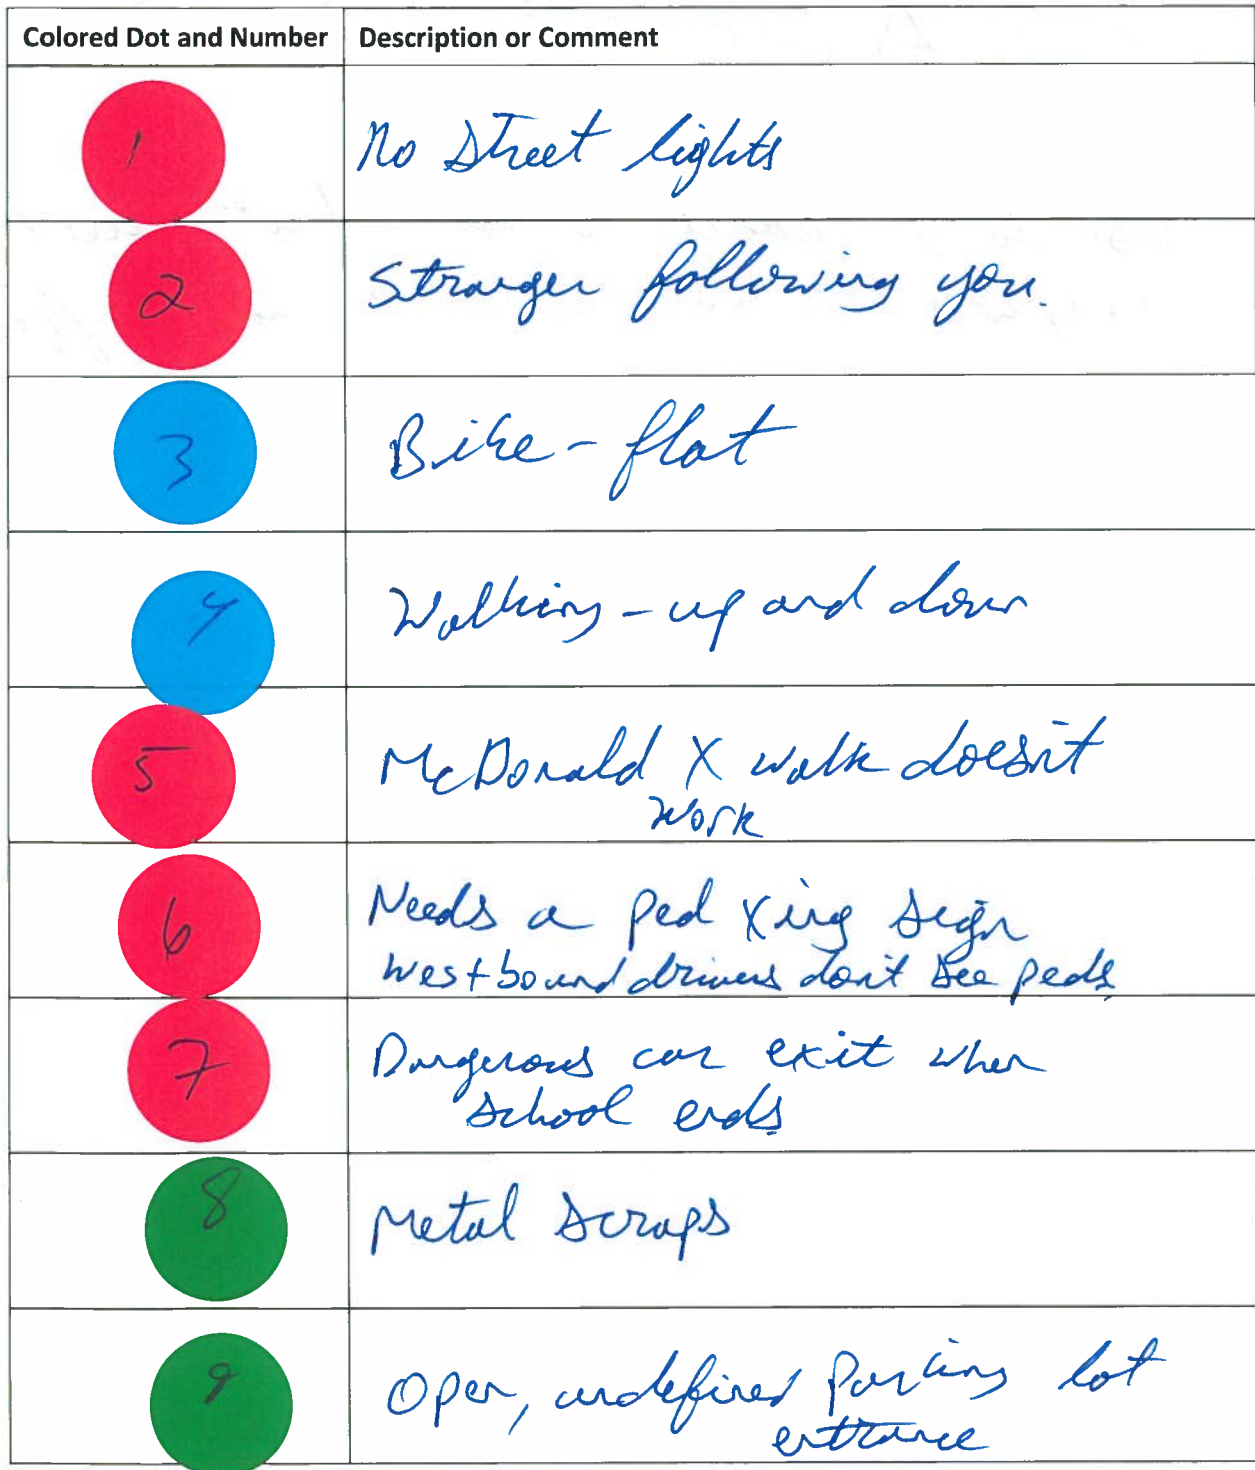 Colored Dot and Number Description or Comment
1 No Street lights
2 Stranger following you.
3 Bike - flat
4 Walking - up and down
5 McDonald X walk doesn't
work
6 Needs a ped Xing sign
westbound drivers don't see peds
7 Dangerous car exit when
school ends
8 Metal scraps
9 Open, undefined parking lot
entrance